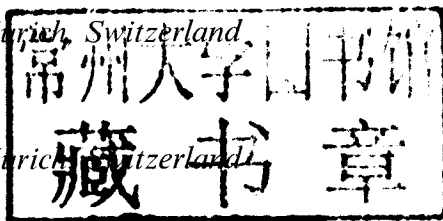 urich, Switzerland
常州大学图书馆
urich, Switzerland
藏书章